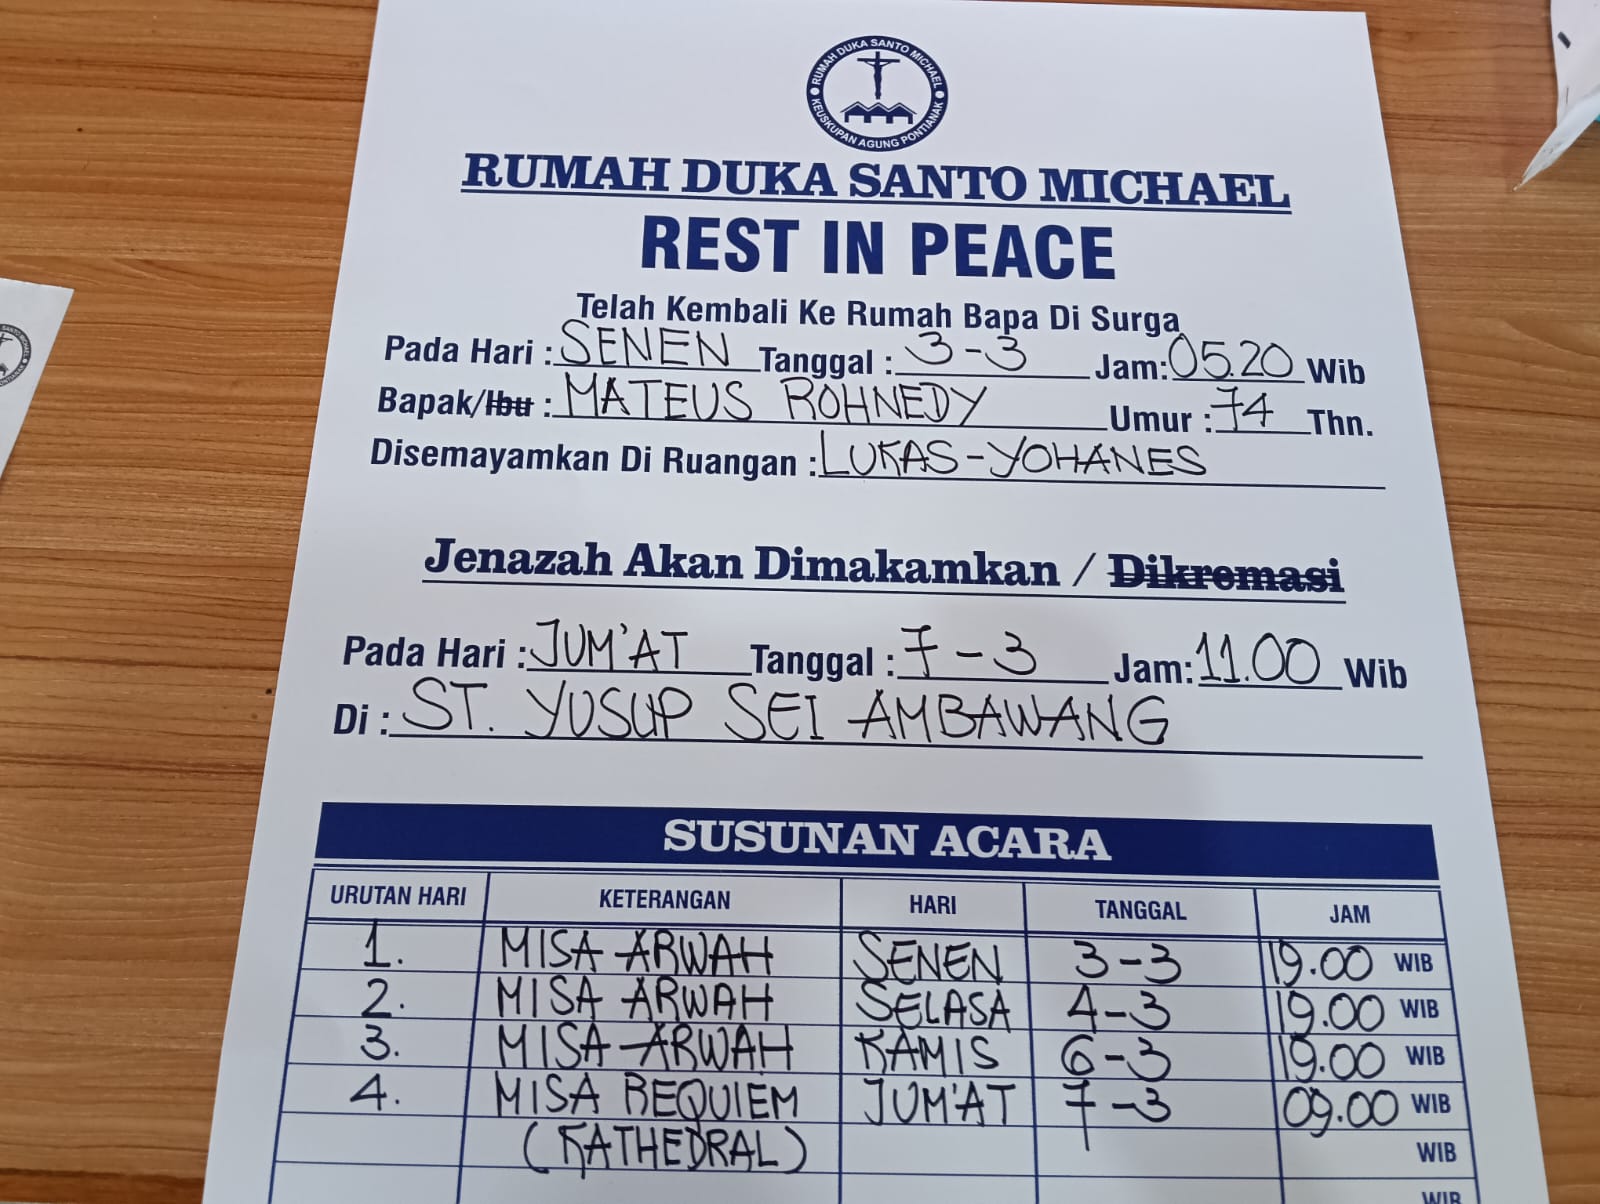 RUMAH DUKA SANTO MICHAEL
KEUSKUPAN AGUNG PONTIANAK
RUMAH DUKA SANTO MICHAEL
REST IN PEACE
Telah Kembali Ke Rumah Bapa Di Surga
Pada Hari : SENEN Tanggal : 3-3 Jam: 05.20 Wib
Bapak/Ibu : MATEUS ROHNEDY Umur : 74 Thn.
Disemayamkan Di Ruangan : LUKAS-YOHANES
Jenazah Akan Dimakamkan / Dikremasi
Pada Hari : JUM'AT Tanggal : 7-3 Jam: 11.00 Wib
Di : ST. YUSUP SEI AMBAWANG
SUSUNAN ACARA
URUTAN HARI KETERANGAN HARI TANGGAL JAM
1. MISA ARWAH SENEN 3-3 19.00 WIB
2. MISA ARWAH SELASA 4-3 19.00 WIB
3. MISA ARWAH KAMIS 6-3 19.00 WIB
4. MISA REQUIEM JUM'AT 7-3 09.00 WIB
(KATHEDRAL) WIB
WIB